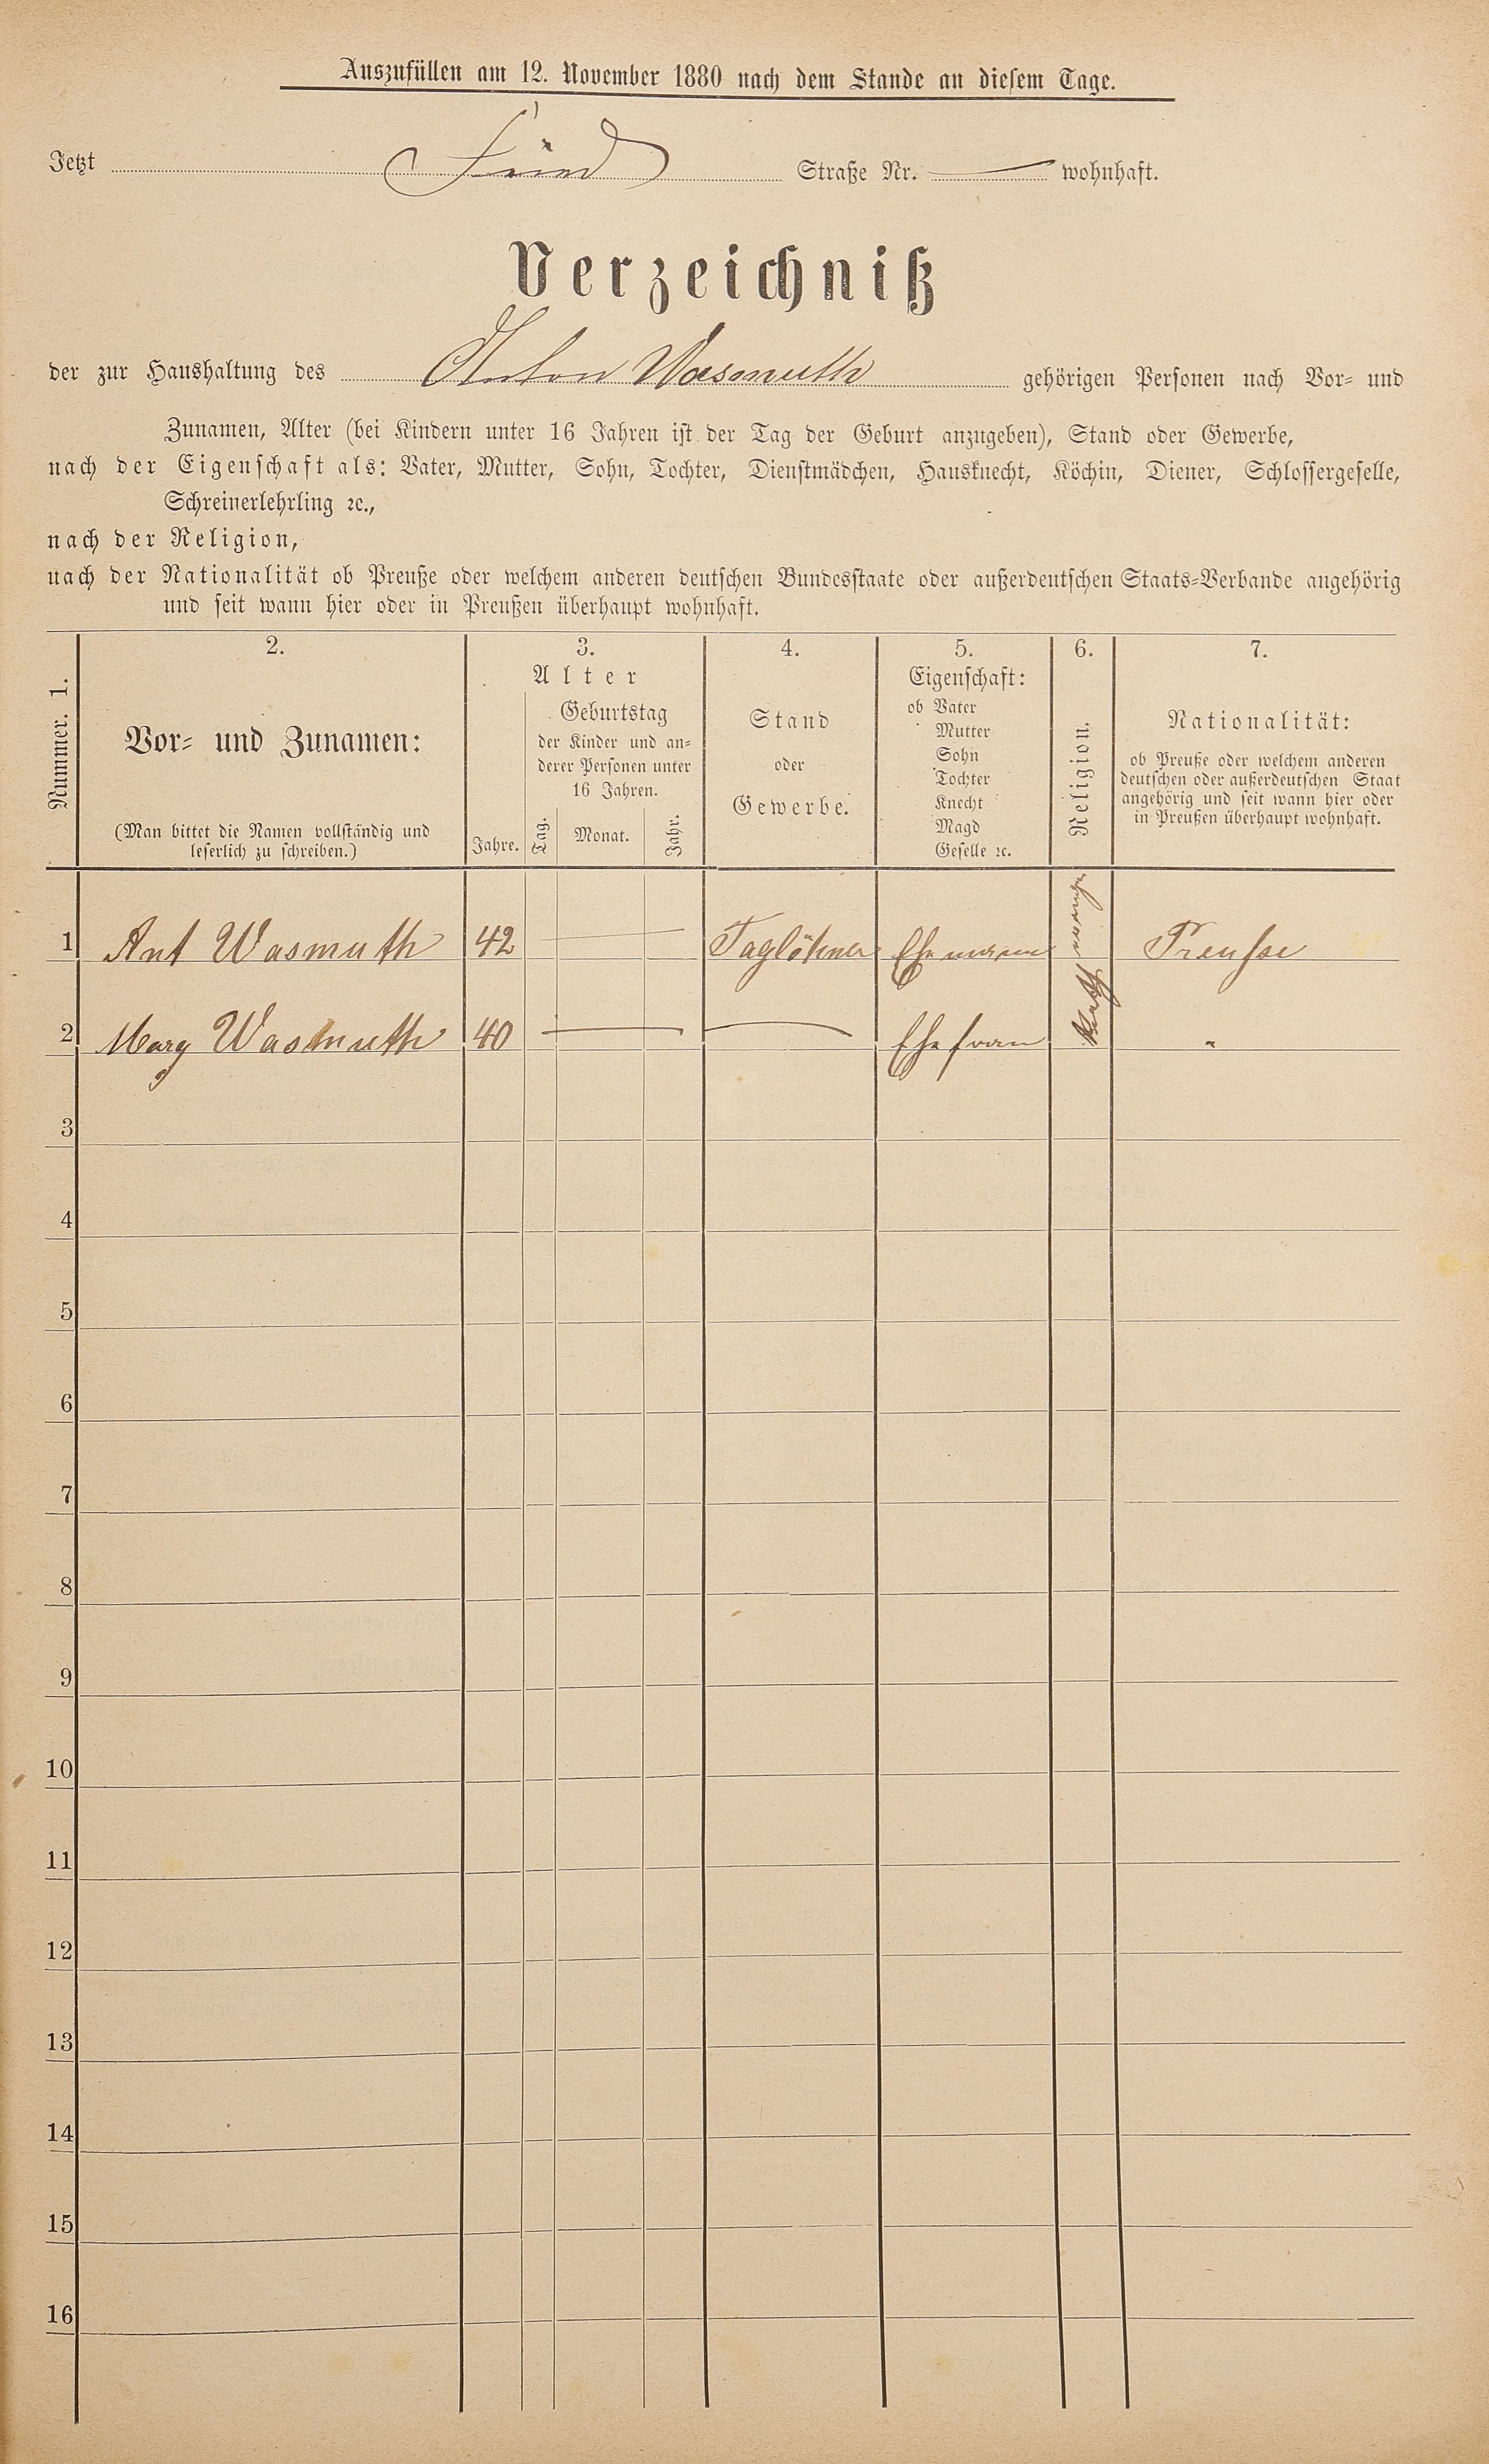 Auszufüllen am 12. November 1880 nach dem Stande an diesem Tage.
Jetzt Straße Nr. — wohnhaft.
Verzeichniß
der zur Haushaltung des Anton Wasmuth gehörigen Personen nach Vor- und
Zunamen, Alter (bei Kindern unter 16 Jahren ist der Tag der Geburt anzugeben), Stand oder Gewerbe,
nach der Eigenschaft als: Vater, Mutter, Sohn, Tochter, Dienstmädchen, Hausknecht, Köchin, Diener, Schlossergeselle,
Schreinerlehrling ꝛc.,
nach der Religion,
nach der Nationalität ob Preuße oder welchem anderen deutschen Bundesstaate oder außerdeutschen Staats-Verbande angehörig
und seit wann hier oder in Preußen überhaupt wohnhaft.
Nummer. 1.
2.
Vor- und Zunamen:
(Man bittet die Namen vollständig und
leserlich zu schreiben.)
3.
Alter
Jahre.
Geburtstag
der Kinder und an-
derer Personen unter
16 Jahren.
Tag.
Monat.
Jahr.
4.
Stand
oder
Gewerbe.
5.
Eigenschaft:
ob Vater
Mutter
Sohn
Tochter
Knecht
Magd
Geselle ꝛc.
6.
Religion.
7.
Nationalität:
ob Preuße oder welchem anderen
deutschen oder außerdeutschen Staat
angehörig und seit wann hier oder
in Preußen überhaupt wohnhaft.
1 Ant Wasmuth 42 — Taglöhner Ehemann Preusse
2 Marg Wasmuth 40 — — Ehefrau "
Kath
3
4
5
6
7
8
9
10
11
12
13
14
15
16